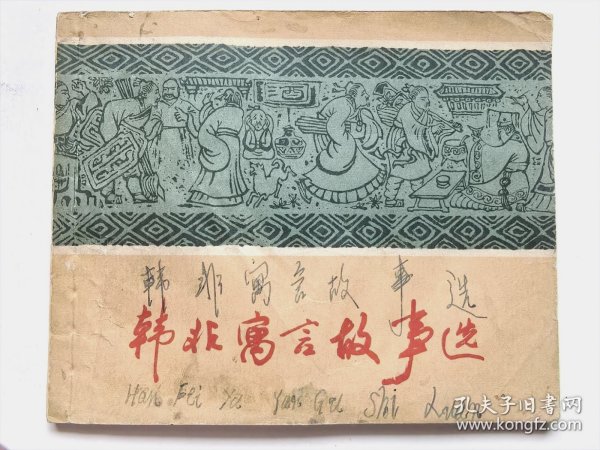 酒
韩非寓言故事选
韩非寓言故事选
Han Fei Yu Yan Gu Shi
孔夫子旧书网
www.kongfz.com